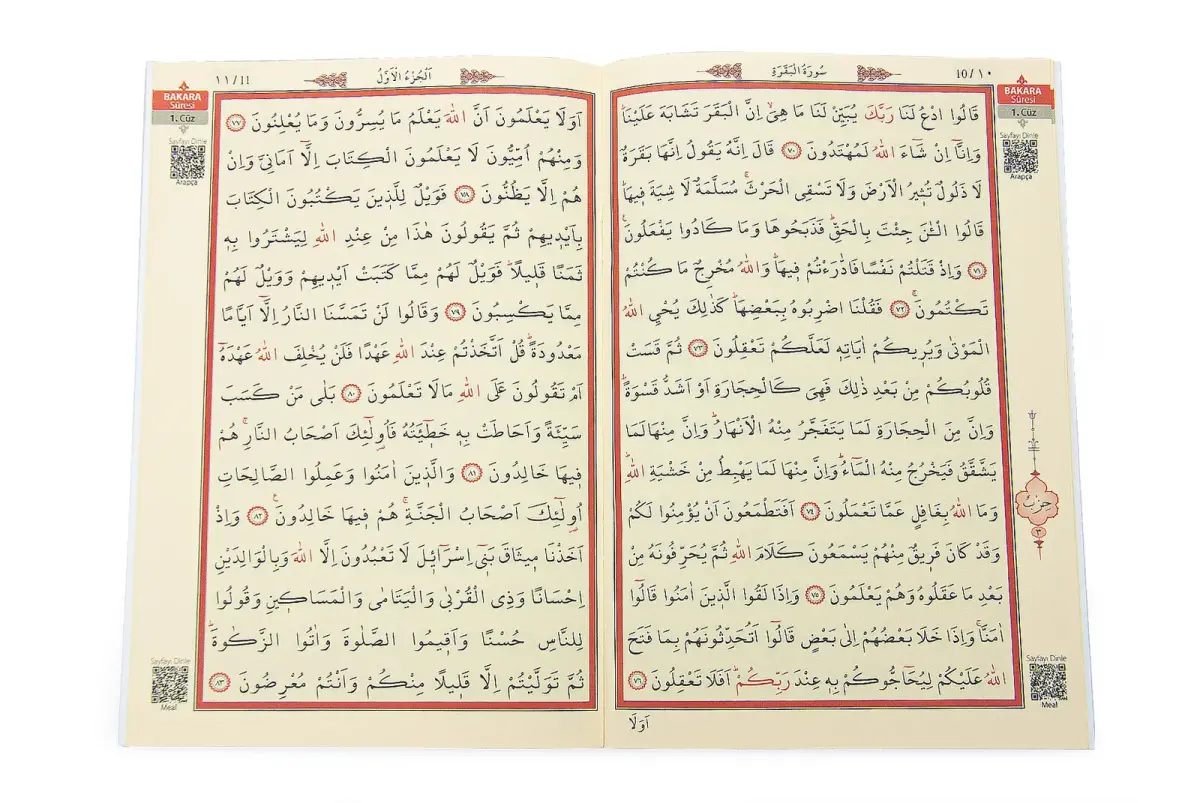 ١٠/10
سُورَةُ الْبَقَرَةِ
BAKARA
Sûresi
1. Cüz
Sayfayı Dinle
Arapça
قَالُوا ادْعُ لَنَا رَبَّكَ يُبَيِّنْ لَنَا مَا هِىَۙ اِنَّ الْبَقَرَ تَشَابَهَ عَلَيْنَاۜ
وَاِنَّٓا اِنْ شَٓاءَ اللّٰهُ لَمُهْتَدُونَ ﴿٧٠﴾ قَالَ اِنَّهُ يَقُولُ اِنَّهَا بَقَرَةٌ
لَا ذَلُولٌ تُثٖيرُ الْاَرْضَ وَلَا تَسْقِى الْحَرْثَۚ مُسَلَّمَةٌ لَا شِيَةَ فٖيهَاۜ
قَالُوا الْـٰٔنَ جِئْتَ بِالْحَقِّۜ فَذَبَحُوهَا وَمَا كَادُوا يَفْعَلُونَۚ
﴿٧١﴾ وَاِذْ قَتَلْتُمْ نَفْسًا فَادّٰرَءْتُمْ فٖيهَاۜ وَاللّٰهُ مُخْرِجٌ مَا كُنْتُمْ
تَكْتُمُونَۚ ﴿٧٢﴾ فَقُلْنَا اضْرِبُوهُ بِبَعْضِهَاۜ كَذٰلِكَ يُحْيِى اللّٰهُ
الْمَوْتٰى وَيُرٖيكُمْ اٰيَاتِهٖ لَعَلَّكُمْ تَعْقِلُونَ ﴿٧٣﴾ ثُمَّ قَسَتْ
قُلُوبُكُمْ مِنْ بَعْدِ ذٰلِكَ فَهِىَ كَالْحِجَارَةِ اَوْ اَشَدُّ قَسْوَةًۜ
وَاِنَّ مِنَ الْحِجَارَةِ لَمَا يَتَفَجَّرُ مِنْهُ الْاَنْهَارُۜ وَاِنَّ مِنْهَا لَمَا
يَشَّقَّقُ فَيَخْرُجُ مِنْهُ الْمَٓاءُۜ وَاِنَّ مِنْهَا لَمَا يَهْبِطُ مِنْ خَشْيَةِ اللّٰهِۜ
وَمَا اللّٰهُ بِغَافِلٍ عَمَّا تَعْمَلُونَ ﴿٧٤﴾ اَفَتَطْمَعُونَ اَنْ يُؤْمِنُوا لَكُمْ
وَقَدْ كَانَ فَرٖيقٌ مِنْهُمْ يَسْمَعُونَ كَلَامَ اللّٰهِ ثُمَّ يُحَرِّفُونَهُ مِنْ
بَعْدِ مَا عَقَلُوهُ وَهُمْ يَعْلَمُونَ ﴿٧٥﴾ وَاِذَا لَقُوا الَّذٖينَ اٰمَنُوا قَالُٓوا
اٰمَنَّاۚ وَاِذَا خَلَا بَعْضُهُمْ اِلٰى بَعْضٍ قَالُٓوا اَتُحَدِّثُونَهُمْ بِمَا فَتَحَ
اللّٰهُ عَلَيْكُمْ لِيُحَٓاجُّوكُمْ بِهٖ عِنْدَ رَبِّكُمْۜ اَفَلَا تَعْقِلُونَ ﴿٧٦﴾
اَوَلَا
حِزْبٌ
٣
Sayfayı Dinle
Meal
١١/11
اَلْجُزْءُ الْاَوَّلُ
BAKARA
Sûresi
1. Cüz
Sayfayı Dinle
Arapça
اَوَلَا يَعْلَمُونَ اَنَّ اللّٰهَ يَعْلَمُ مَا يُسِرُّونَ وَمَا يُعْلِنُونَ ﴿٧٧﴾
وَمِنْهُمْ اُمِّيُّونَ لَا يَعْلَمُونَ الْكِتَابَ اِلَّٓا اَمَانِىَّ وَاِنْ
هُمْ اِلَّا يَظُنُّونَ ﴿٧٨﴾ فَوَيْلٌ لِلَّذٖينَ يَكْتُبُونَ الْكِتَابَ
بِاَيْدٖيهِمْ ثُمَّ يَقُولُونَ هٰذَا مِنْ عِنْدِ اللّٰهِ لِيَشْتَرُوا بِهٖ
ثَمَنًا قَلٖيلًاۜ فَوَيْلٌ لَهُمْ مِمَّا كَتَبَتْ اَيْدٖيهِمْ وَوَيْلٌ لَهُمْ
مِمَّا يَكْسِبُونَ ﴿٧٩﴾ وَقَالُوا لَنْ تَمَسَّنَا النَّارُ اِلَّٓا اَيَّامًا
مَعْدُودَةًۜ قُلْ اَتَّخَذْتُمْ عِنْدَ اللّٰهِ عَهْدًا فَلَنْ يُخْلِفَ اللّٰهُ عَهْدَهُٓ
اَمْ تَقُولُونَ عَلَى اللّٰهِ مَا لَا تَعْلَمُونَ ﴿٨٠﴾ بَلٰى مَنْ كَسَبَ
سَيِّئَةً وَاَحَاطَتْ بِهٖ خَطٖٓيـَٔتُهُ فَاُو۬لٰٓئِكَ اَصْحَابُ النَّارِۚ هُمْ
فٖيهَا خَالِدُونَ ﴿٨١﴾ وَالَّذٖينَ اٰمَنُوا وَعَمِلُوا الصَّالِحَاتِ
اُو۬لٰٓئِكَ اَصْحَابُ الْجَنَّةِۚ هُمْ فٖيهَا خَالِدُونَۚ ﴿٨٢﴾ وَاِذْ
اَخَذْنَا مٖيثَاقَ بَنٖٓى اِسْرَٓائٖلَ لَا تَعْبُدُونَ اِلَّا اللّٰهَ وَبِالْوَالِدَيْنِ
اِحْسَانًا وَذِى الْقُرْبٰى وَالْيَتَامٰى وَالْمَسَاكٖينِ وَقُولُوا
لِلنَّاسِ حُسْنًا وَاَقٖيمُوا الصَّلٰوةَ وَاٰتُوا الزَّكٰوةَۜ
ثُمَّ تَوَلَّيْتُمْ اِلَّا قَلٖيلًا مِنْكُمْ وَاَنْتُمْ مُعْرِضُونَ ﴿٨٣﴾
Sayfayı Dinle
Meal